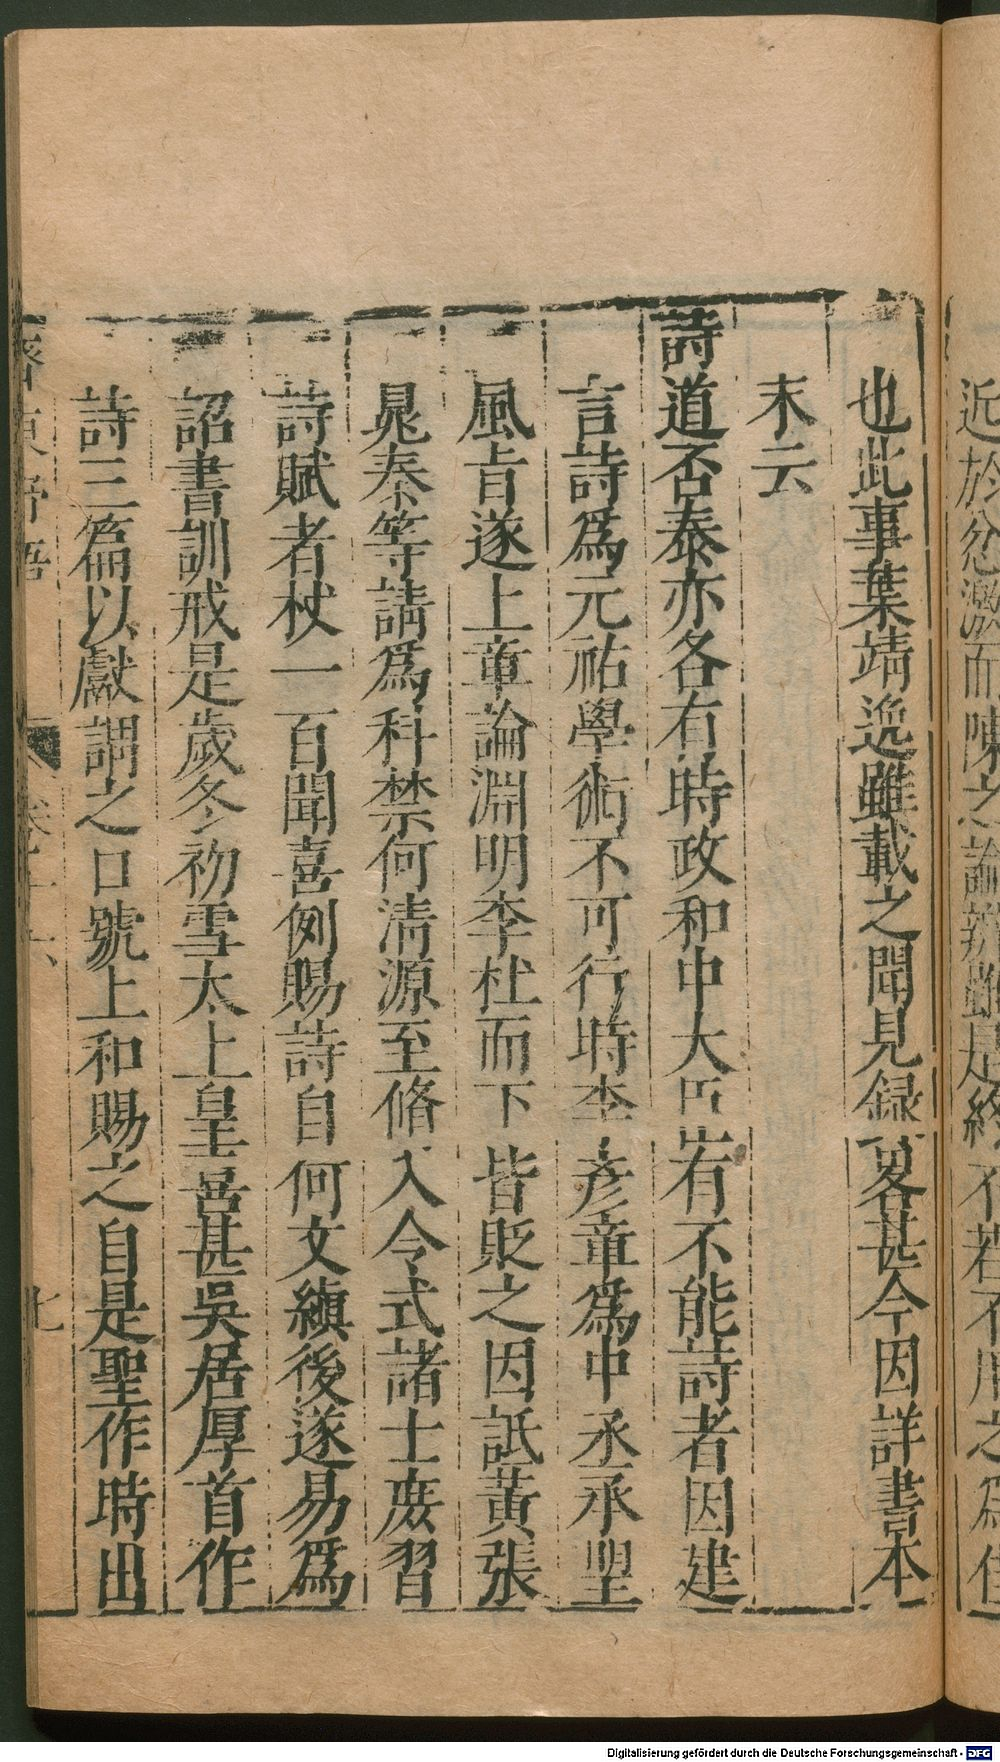 近於忿激而陳之論辨雖是終不若不用之爲佳
也此事葉靖逸雖載之聞見録畧甚今因詳書本
末云
詩道否泰亦各有時政和中大臣有不能詩者因建
言詩爲元祐學術不可行時李彦章爲中丞承望
風旨遂上章論淵明李杜而下皆貶之因詆黄張
晁秦等請爲科禁何清源至脩入令式諸士庶習
詩賦者杖一百聞喜例賜詩自何文縝後遂易爲
詔書訓戒是歲冬初雪太上皇喜甚吳居厚首作
詩三篇以獻謂之口號上和賜之自是聖作時出
齊東野語 卷十六 七
Digitalisierung gefördert durch die Deutsche Forschungsgemeinschaft - DFG